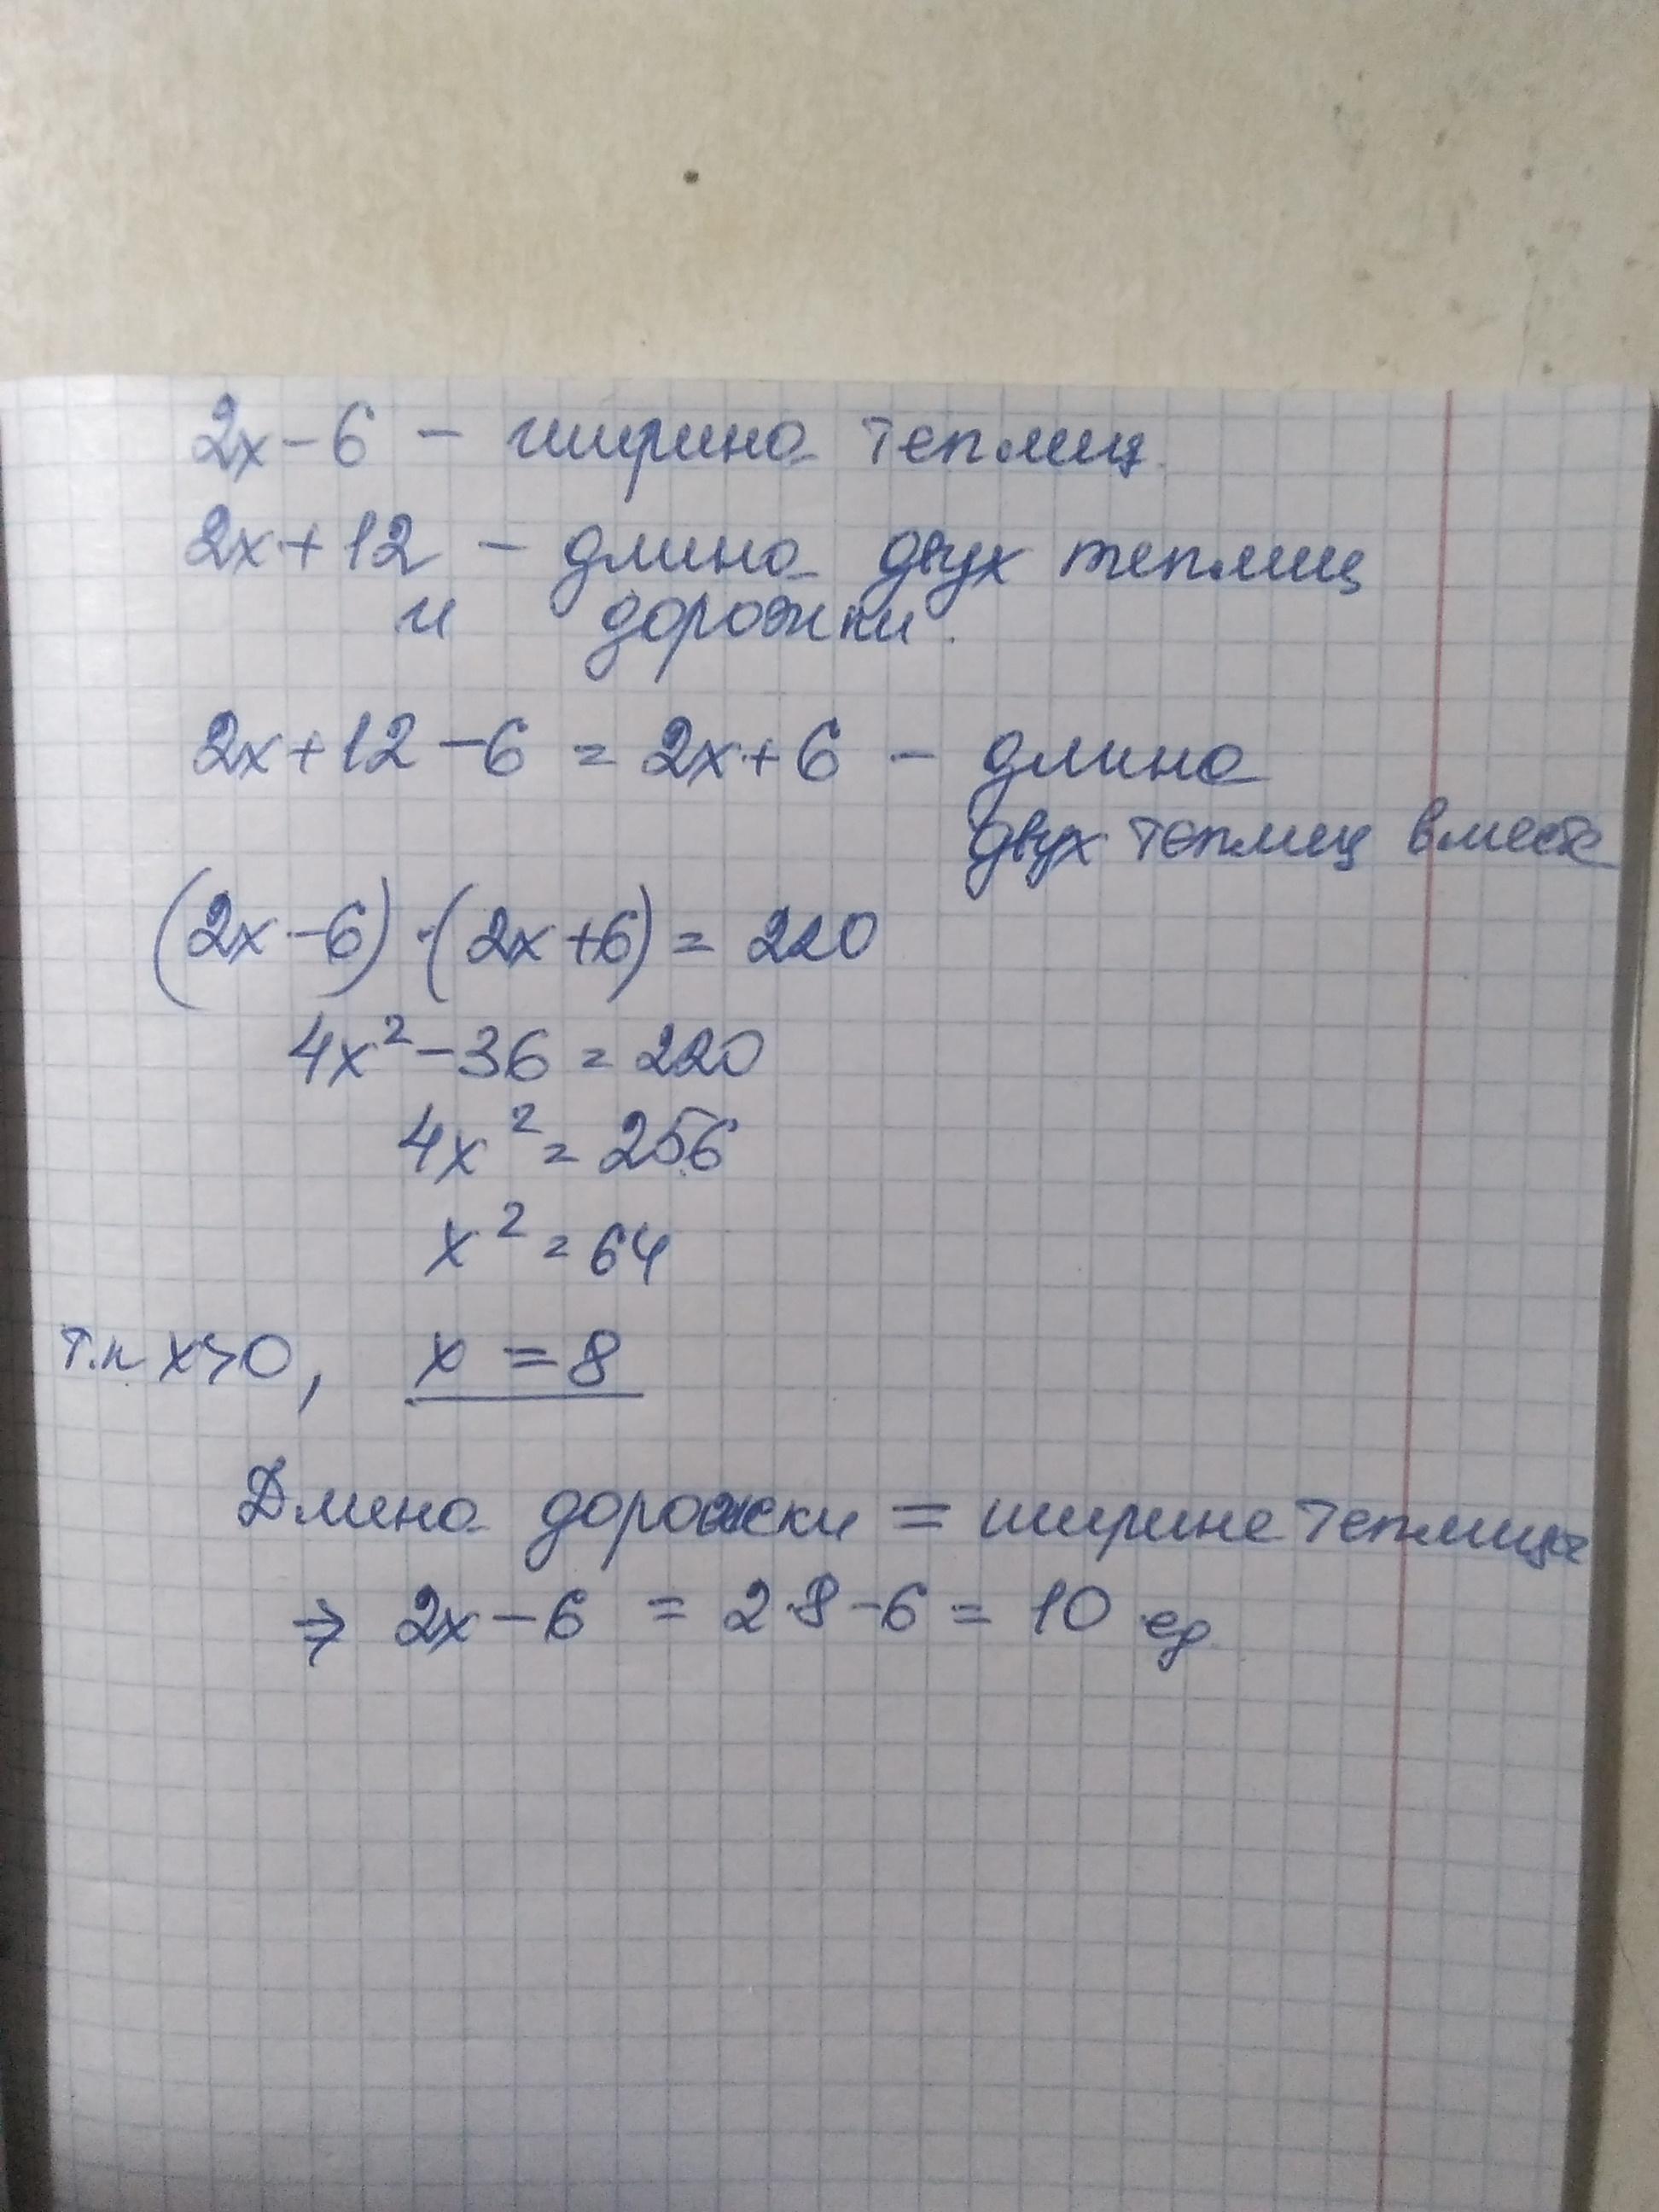 2x - 6 - ширина теплиц
2x + 12 - длина двух теплиц
и дорожки.
2x + 12 - 6 = 2x + 6 - длина
двух теплиц вместе
(2x - 6) · (2x + 6) = 220
4x² - 36 = 220
4x² = 256
x² = 64
т.к x>0, x = 8
Длина дорожки = ширине теплицы
⇒ 2x - 6 = 2·8 - 6 = 10 ед